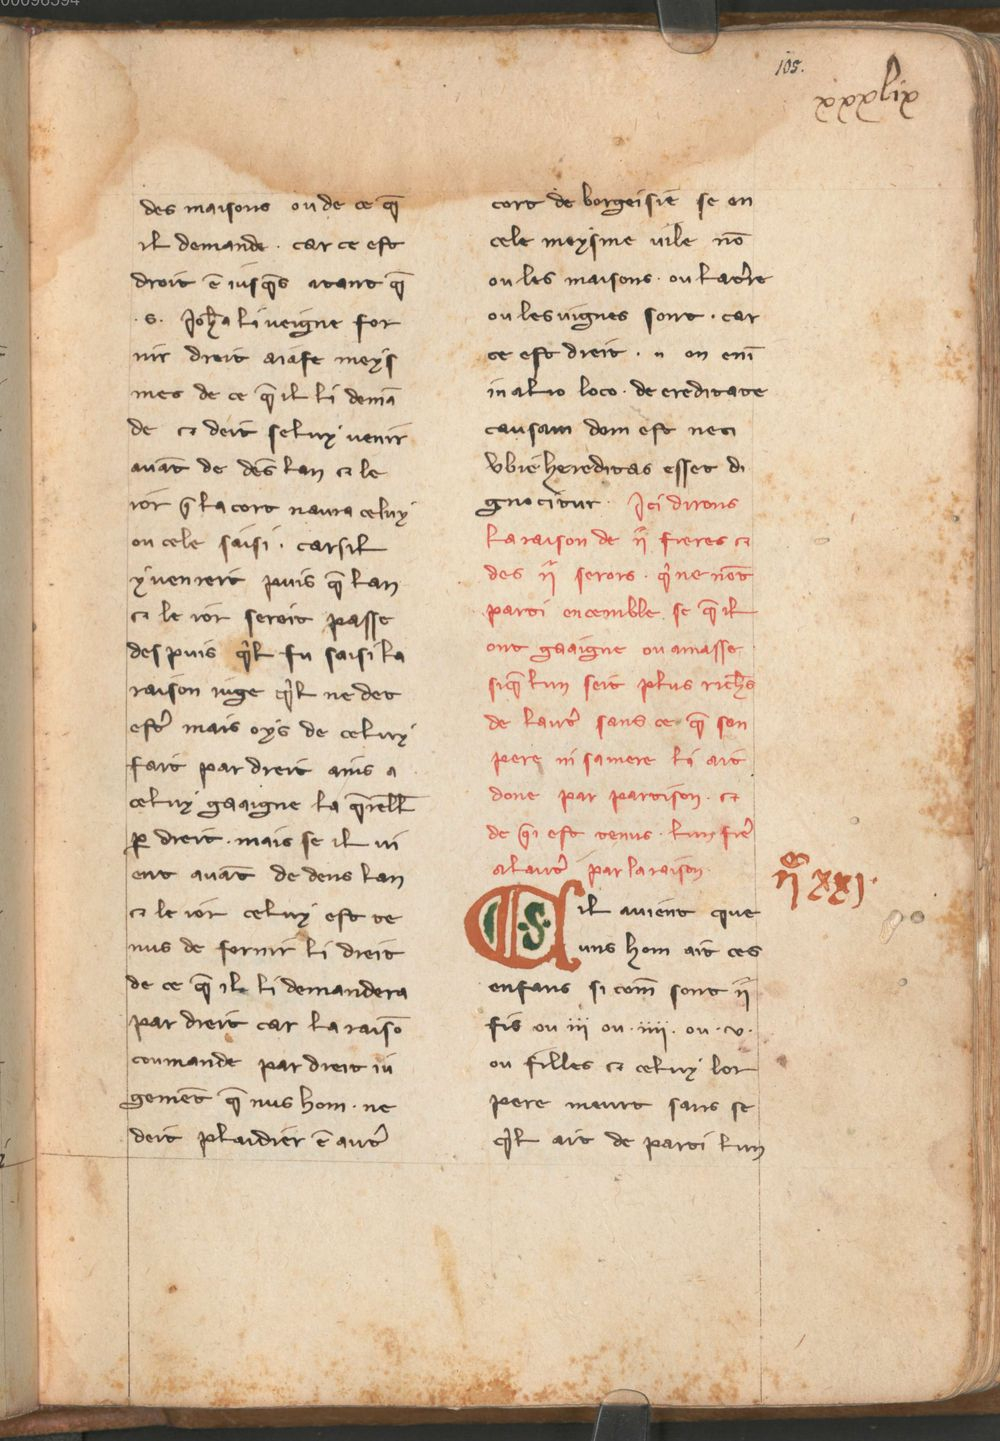 00096394
105.
xxxxlix
des maisons ou de ce q̄
il demande · car ce est
droit ē iusq̄s atant q̄
· s · Joh̄a li ueigne for
nir droit a iase meys
mes de ce q̄ il li demā
de ⁊ deit seluy uenir
auāt de dēs lan ⁊ le
ior q̄ la cort naura celuy
ou cele saisi · car sil
y uenreit puis q̄ lan
⁊ le ior seroit passe
des puis q̓l fu saisi la
raison iuge q̓l ne det
estr̓ mais oys de celuy
fait par dreit ains a
celuy gaaigne la q̄rell̄
ꝑ dreit · mais se il ui
ent auāt de dens lan
⁊ le ior celuy est te
nus de fornir li dreit
de ce q̄ il li demandera
par dreit car la raisō
coumande par dreit iu
gemēt q̄ nus hom · ne
deit plaidier ē autr̓
cort de borgeisiē se en
cele meysme uile nō
ou les maisons · ou la tr̓re
ou les uignes sont · car
ce est dreit · n on eni̅
in alio loco · de ereditate
causam dom est neci
Vbi ē hereditas esset di
gnocitur · Ici dirons
la raison de ij freres ⁊
des ij serors · q̓ ne nōt
parti encemble se q̄ il
ont gaaigne ou amasse
siq̄ lun seit plus richs̄
de lautr̓ sans ce q̄ son
pere ni sa mere li ait
done par partison · ⁊
de q̄i est tenus · lun frer̓
a lautr̓ par la raison
ij xxj ·
S il auient que
uns hom ait ces
enfans si com̄ sont ij
fis ou iii ou · iiii · ou · v ·
ou filles ⁊ celuy lor
pere meurt sans se
q̓l ait de parti lun